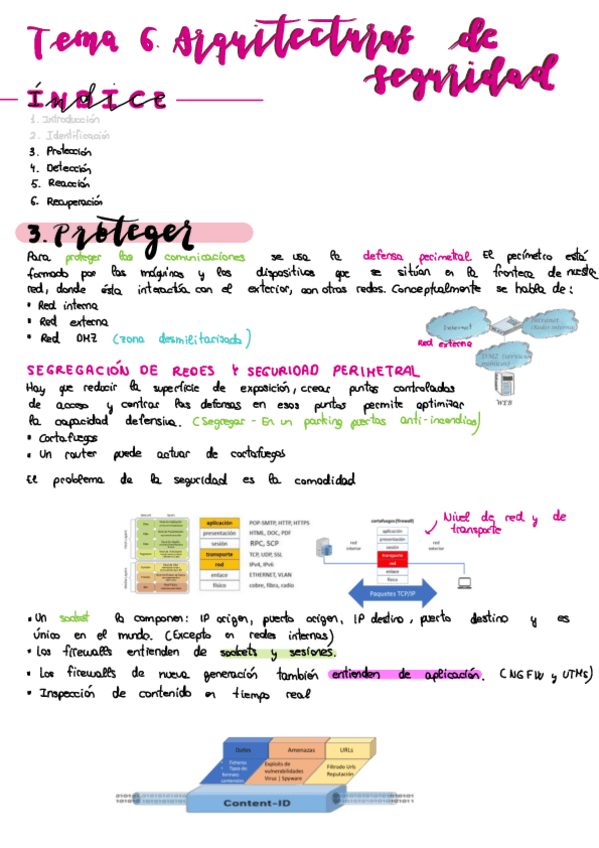 Tema 6. Arquitecturas de
seguridad
ÍNDICE
1. Introducción
2. Identificación
3. Protección
4. Detección
5. Reacción
6. Recuperación
3. Proteger
Para proteger las comunicaciones se usa la defensa perimetral. El perímetro está
formado por las máquinas y los dispositivos que se sitúan en la frontera de nuestra
red, donde ésta interactúa con el exterior, con otras redes. Conceptualmente se habla de:
• Red interna
• Red externa
• Red DMZ (zona desmilitarizada)
Internet
Intranet
(Redes internas)
Red externa
DMZ (servicios
públicos)
WEB
SEGREGACIÓN DE REDES Y SEGURIDAD PERIMETRAL
Hay que reducir la superficie de exposición, crear puntos controlados
de acceso y centrar las defensas en esos puntos permite optimizar
la capacidad defensiva. (Segregar - En un parking puertas anti-incendios)
• Cortafuegos
• Un router puede actuar de cortafuegos
El problema de la seguridad es la comodidad
aplicación POP-SMTP, HTTP, HTTPS
presentación HTML, DOC, PDF
sesión RPC, SCP
transporte TCP, UDP, SSL
red IPv4, IPv6
enlace ETHERNET, VLAN
físico cobre, fibra, radio
cortafuegos (firewall)
red exterior
aplicación
presentación
sesión
transporte
red
enlace
físico
red exterior
Paquetes TCP/IP
Nivel de red y de
transporte
• Un socket lo componen: IP origen, puerto origen, IP destino, puerto destino y es
único en el mundo. (Excepto en redes internas)
• Los firewalls entienden de sockets y sesiones.
• Los firewalls de nueva generación también entienden de aplicación. (NGFW y UTMs)
• Inspección de contenido en tiempo real
Datos
Amenazas
URLs
• Ficheros
• Tipos de
formato
Exploits de
vulnerabilidades
Virus | Spyware
Filtrado Urls
Reputación
Content-ID